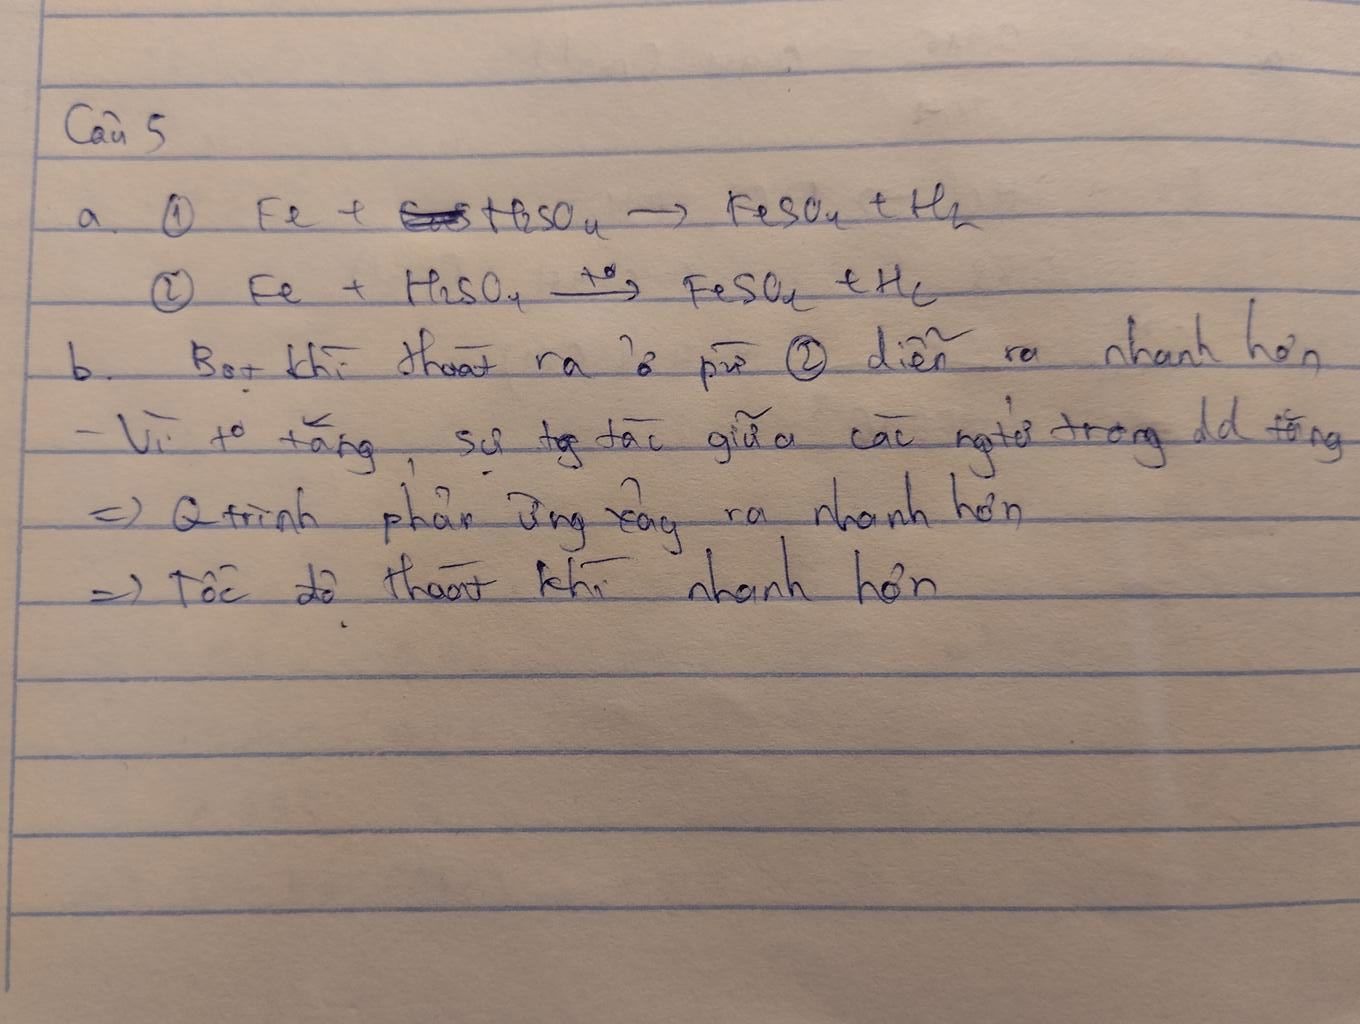 Câu 5
a. ① Fe + H2SO4 → FeSO4 + H2
② Fe + H2SO4 →(t°) FeSO4 + H2
b. Bọt khí thoát ra ở pứ ② diễn ra nhanh hơn
- Vì t° tăng, sự tg tác giữa các ngtử trong dd tăng
=> Q trình phản ứng xảy ra nhanh hơn
=> Tốc độ thoát khí nhanh hơn